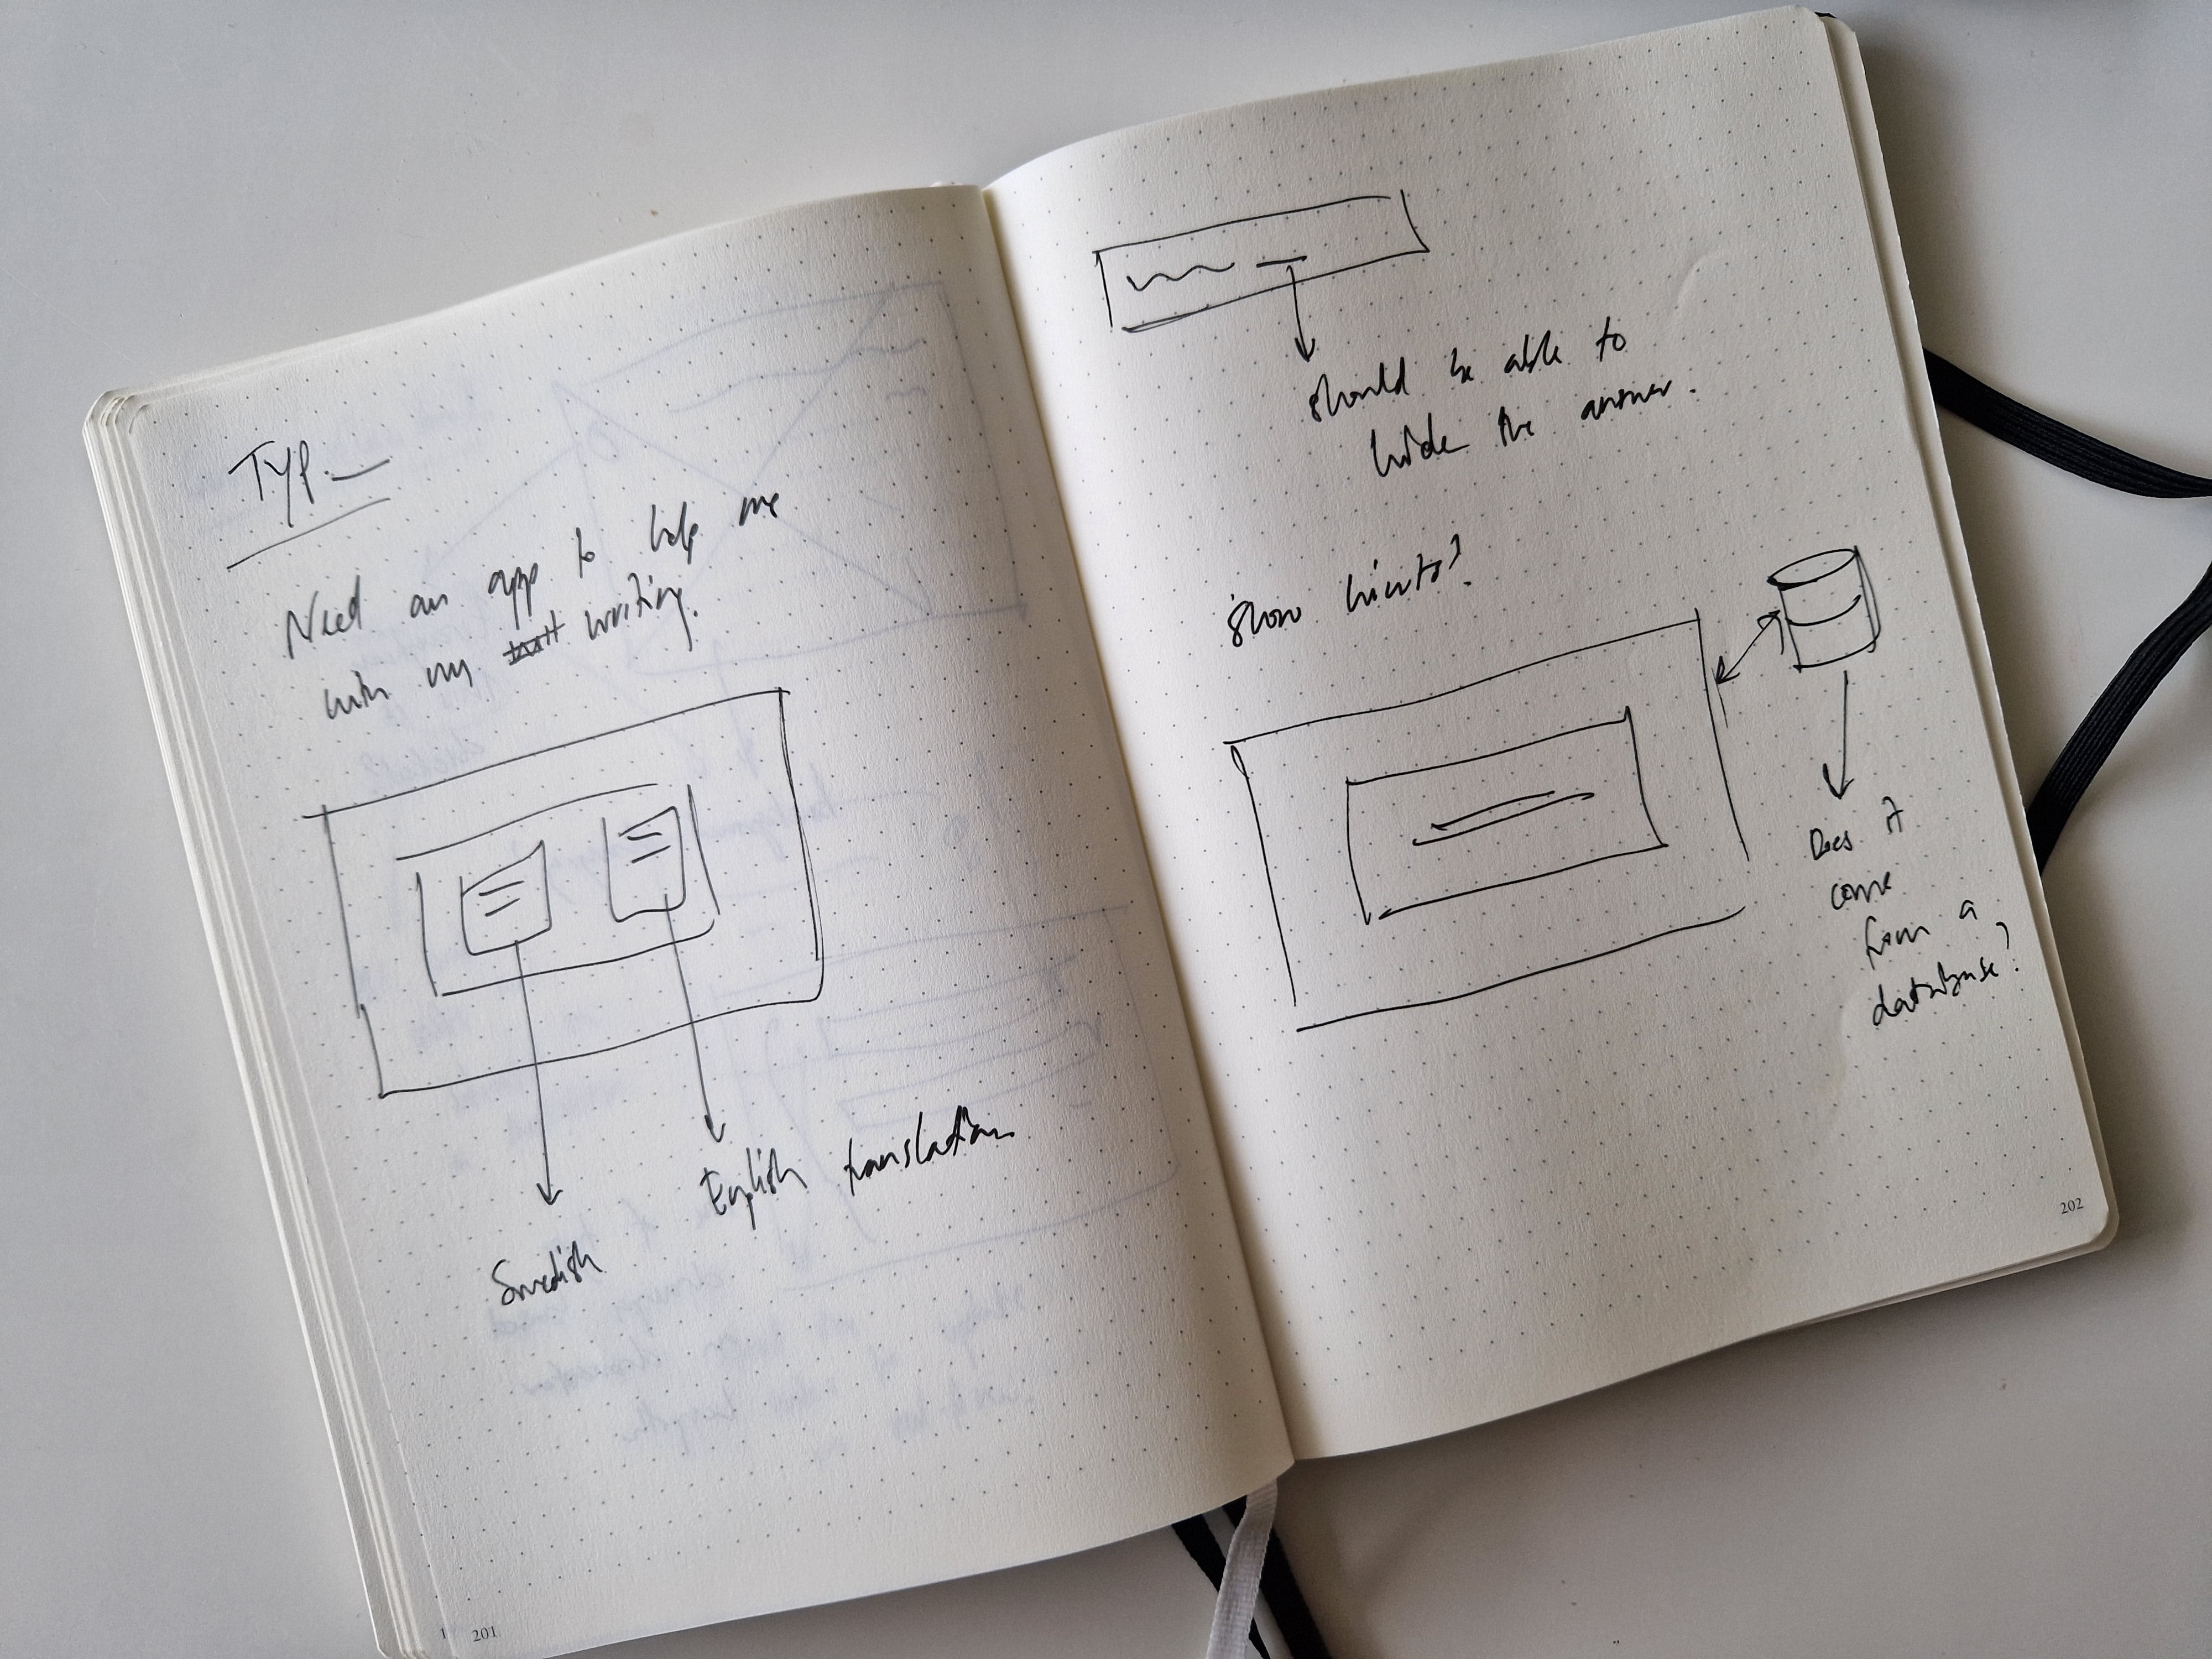 Typ_
Need an app to help me
with my writing.
Swedish
English translation
1 201
should be able to
hide the answer.
Show hints?
Does it
come
from a
database?
202